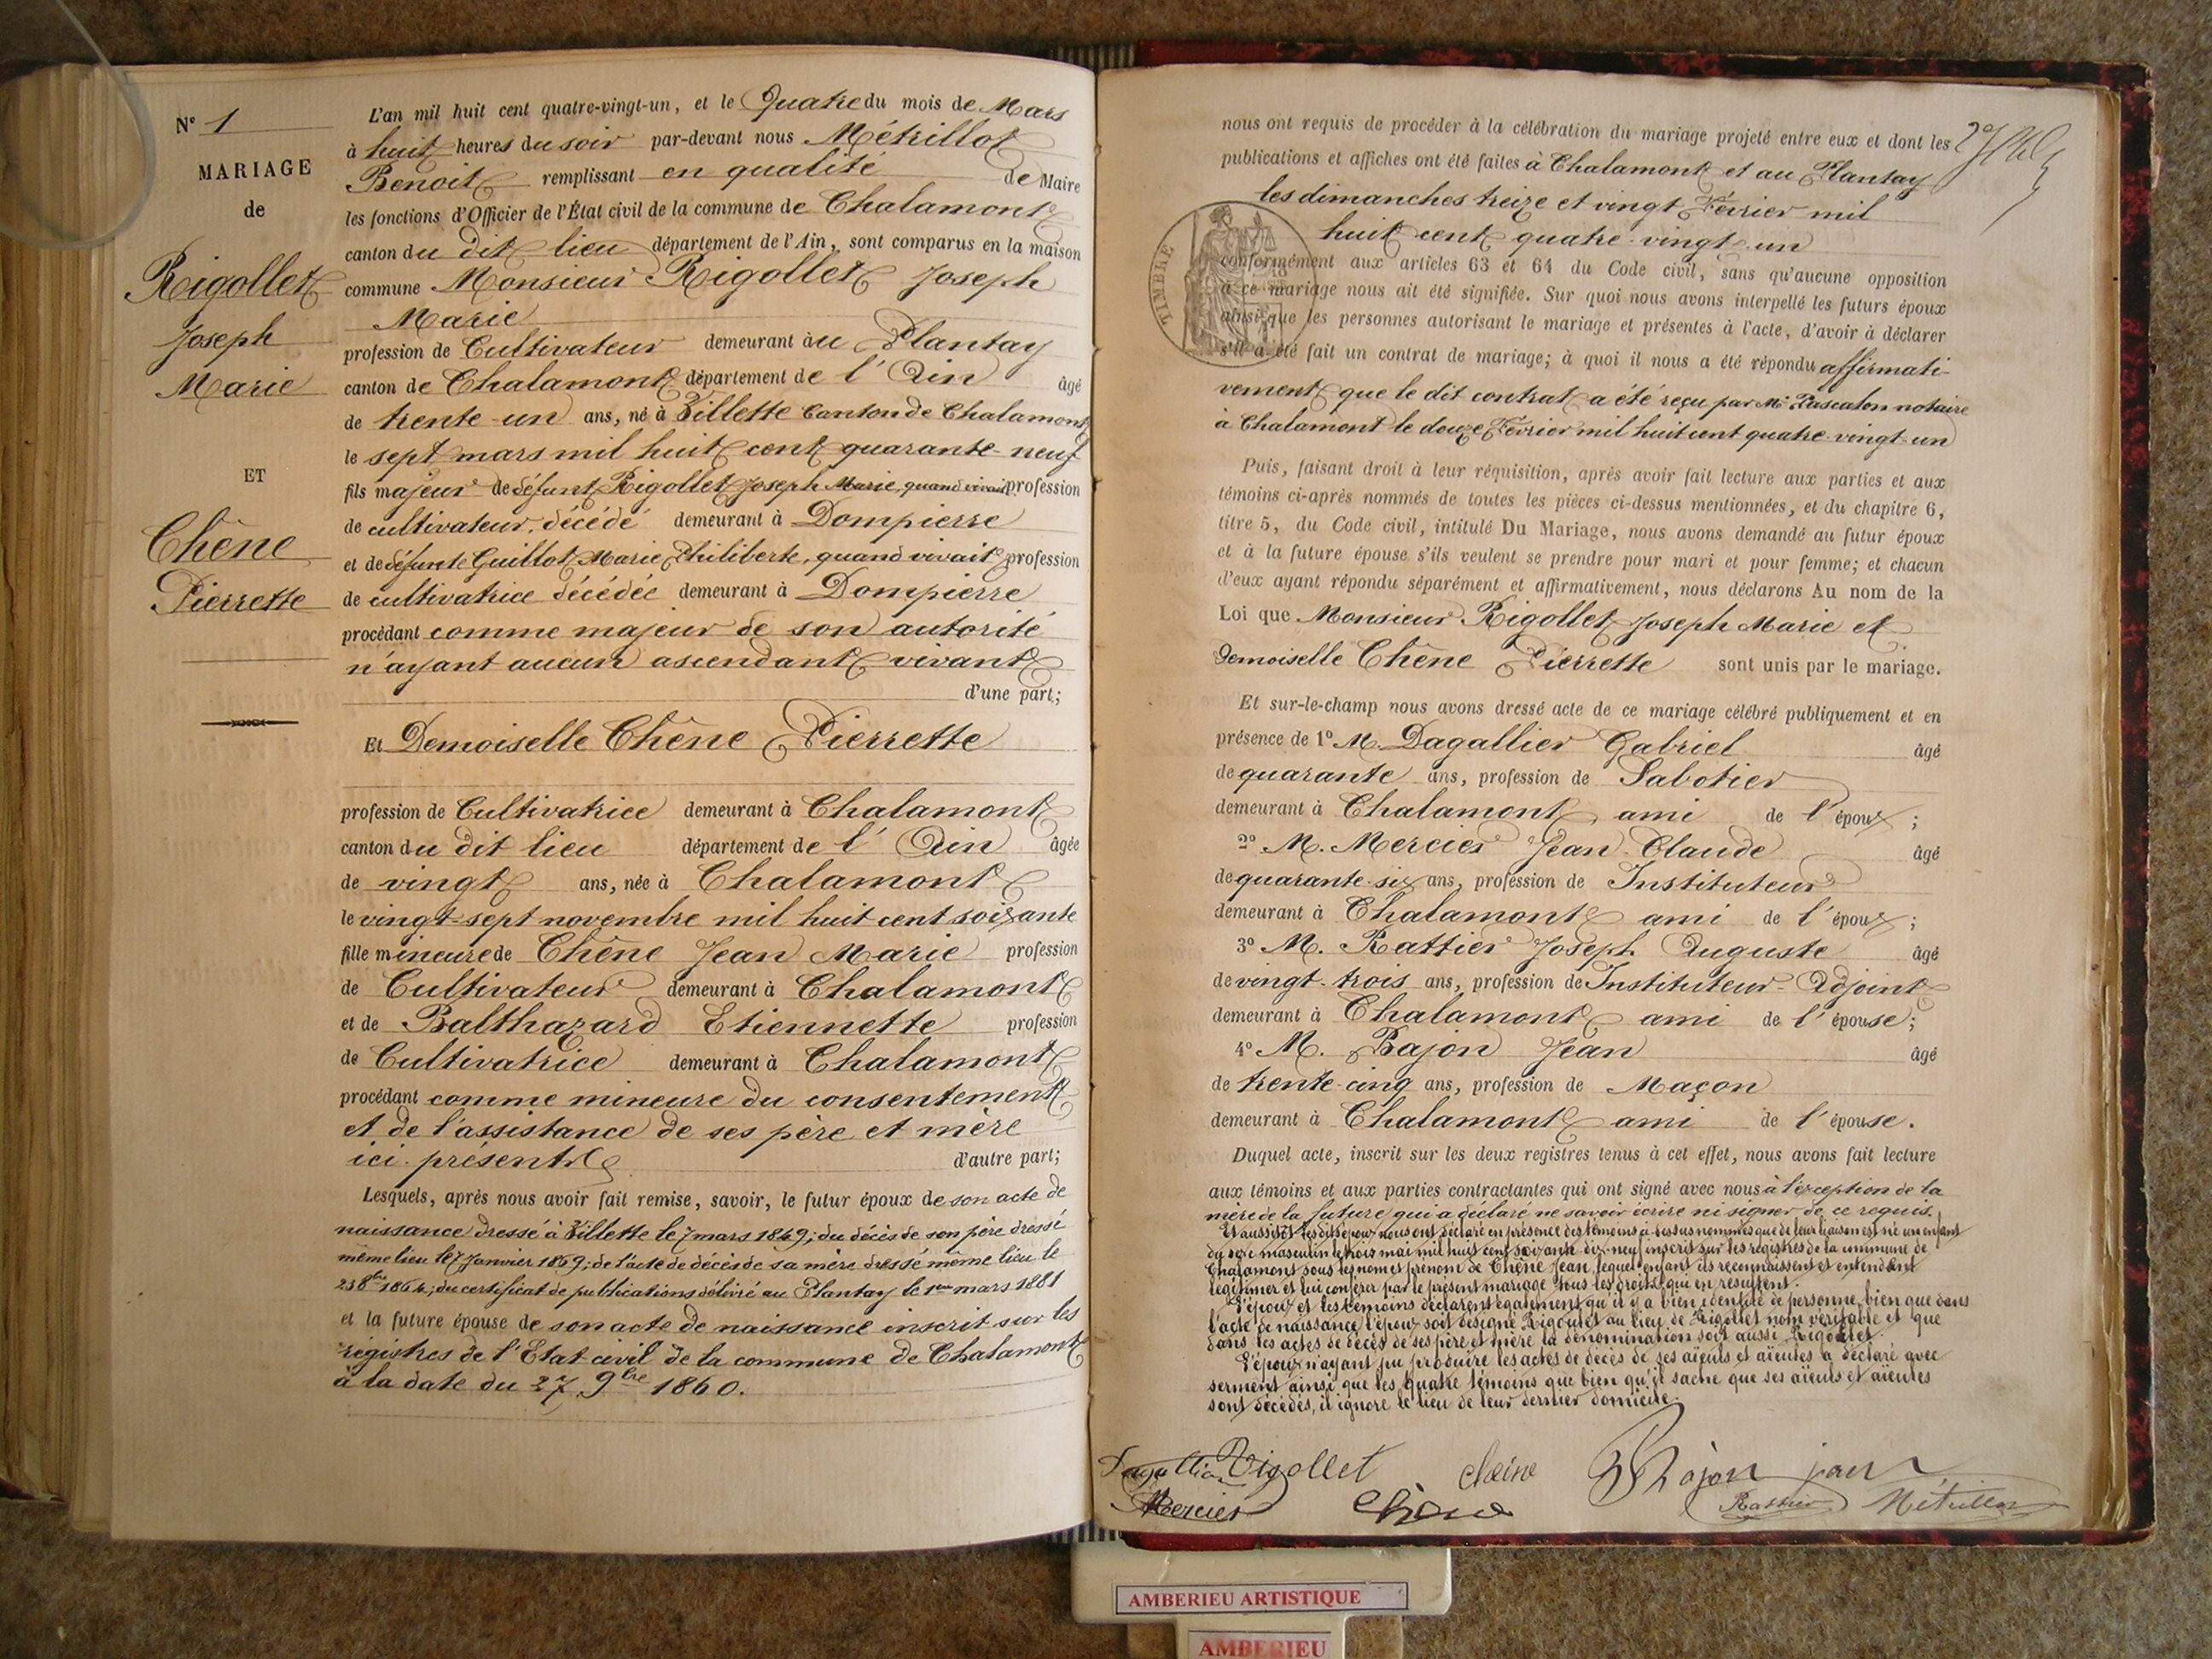 N° 1
MARIAGE
de
Rigollet
Joseph
Marie
ET
Chêne
Pierrette
L'an mil huit cent quatre-vingt-un, et le Quatre du mois de Mars
à huit heures du soir par-devant nous Métrillot
Benoit remplissant en qualité de Maire
les fonctions d'Officier de l'État civil de la commune de Chalamont
canton du dit lieu département de l'Ain, sont comparus en la maison
commune Monsieur Rigollet Joseph
Marie
profession de Cultivateur demeurant au Plantay
canton de Chalamont département de l'Ain âgé
de trente-un ans, né à Villette Canton de Chalamont
le sept mars mil huit cent quarante-neuf
fils majeur de défunt Rigollet Joseph Marie, quand vivait profession
de cultivateur, décédé demeurant à Dompierre
et de défunte Guillot Marie Philiberte, quand vivait profession
de cultivatrice décédée demeurant à Dompierre
procédant comme majeur de son autorité
n'ayant aucun ascendant vivant
d'une part;
Et Demoiselle Chêne Pierrette
profession de Cultivatrice demeurant à Chalamont
canton du dit lieu département de l'Ain âgée
de vingt ans, née à Chalamont
le vingt-sept novembre mil huit cent soixante
fille mineure de Chêne Jean Marie profession
de Cultivateur demeurant à Chalamont
et de Balthazard Etiennette profession
de Cultivatrice demeurant à Chalamont
procédant comme mineure du consentement
et de l'assistance de ses père et mère
ici présents d'autre part;
Lesquels, après nous avoir fait remise, savoir, le futur époux de son acte de
naissance dressé à Villette le 7 mars 1849; du décès de son père dressé
même lieu le 7 Janvier 1869; de l'acte de décès de sa mère dressé même lieu le
23 8bre 1864; du certificat de publications délivré au Plantay le 1er mars 1881
et la future épouse de son acte de naissance inscrit sur les
registres de l'Etat-civil de la commune de Chalamont
à la date du 27 9bre 1860.
nous ont requis de procéder à la célébration du mariage projeté entre eux et dont les
publications et affiches ont été faites à Chalamont et au Plantay
les dimanches treize et vingt Février mil
huit cent quatre-vingt-un
TIMBRE
conformément aux articles 63 et 64 du Code civil, sans qu'aucune opposition
à ce mariage nous ait été signifiée. Sur quoi nous avons interpellé les futurs époux
ainsi que les personnes autorisant le mariage et présentes à l'acte, d'avoir à déclarer
s'il a été fait un contrat de mariage; à quoi il nous a été répondu affirmati-
vement que le dit contrat a été reçu par Me Pascalon notaire
à Chalamont le douze Février mil huit cent quatre-vingt-un
Puis, faisant droit à leur réquisition, après avoir fait lecture aux parties et aux
témoins ci-après nommés de toutes les pièces ci-dessus mentionnées, et du chapitre 6,
titre 5, du Code civil, intitulé Du Mariage, nous avons demandé au futur époux
et à la future épouse s'ils veulent se prendre pour mari et pour femme; et chacun
d'eux ayant répondu séparément et affirmativement, nous déclarons Au nom de la
Loi que Monsieur Rigollet Joseph Marie et
Demoiselle Chêne Pierrette sont unis par le mariage.
Et sur-le-champ nous avons dressé acte de ce mariage célébré publiquement et en
présence de 1° M. Dagallier Gabriel âgé
de quarante ans, profession de Sabotier
demeurant à Chalamont, ami de l'époux;
2° M. Mercier Jean-Claude âgé
de quarante-six ans, profession de Instituteur
demeurant à Chalamont ami de l'époux;
3° M. Rattier Joseph Auguste âgé
de vingt-trois ans, profession de Instituteur-Adjoint
demeurant à Chalamont ami de l'épouse;
4° M. Bajon Jean âgé
de trente-cinq ans, profession de Maçon
demeurant à Chalamont ami de l'épouse.
Duquel acte, inscrit sur les deux registres tenus à cet effet, nous avons fait lecture
aux témoins et aux parties contractantes qui ont signé avec nous à l'exception de la
mère de la future qui a déclaré ne savoir écrire ni signer de ce requis.
Et aussitôt les dits époux nous ont déclaré en présence des témoins ci-dessus nommés que de leur liaison est né un enfant
du sexe masculin le trois mai mil huit cent soixante-dix-neuf inscrit sur les registres de la commune de
Chalamont sous les nom et prénom de Chêne Jean, lequel enfant ils reconnaissent et entendent
légitimer et lui conférer par le présent mariage tous les droits qui en résultent.
L'époux et les témoins déclarent également qu'il y a bien identité de personne, bien que dans
l'acte de naissance l'époux soit désigné Rigoulet au lieu de Rigollet nom véritable et que
dans les actes de décès de ses père et mère la dénomination soit aussi Rigoulet.
L'époux n'ayant pu produire les actes de décès de ses aïeuls et aïeules a déclaré avec
serment ainsi que les quatre témoins que bien qu'il sache que ses aïeuls et aïeules
sont décédés, il ignore le lieu de leur dernier domicile.
Dagallier Rigollet Chêne Bajon jean
Mercier Chêne Rattier Métrillot
AMBERIEU ARTISTIQUE
AMBERIEU